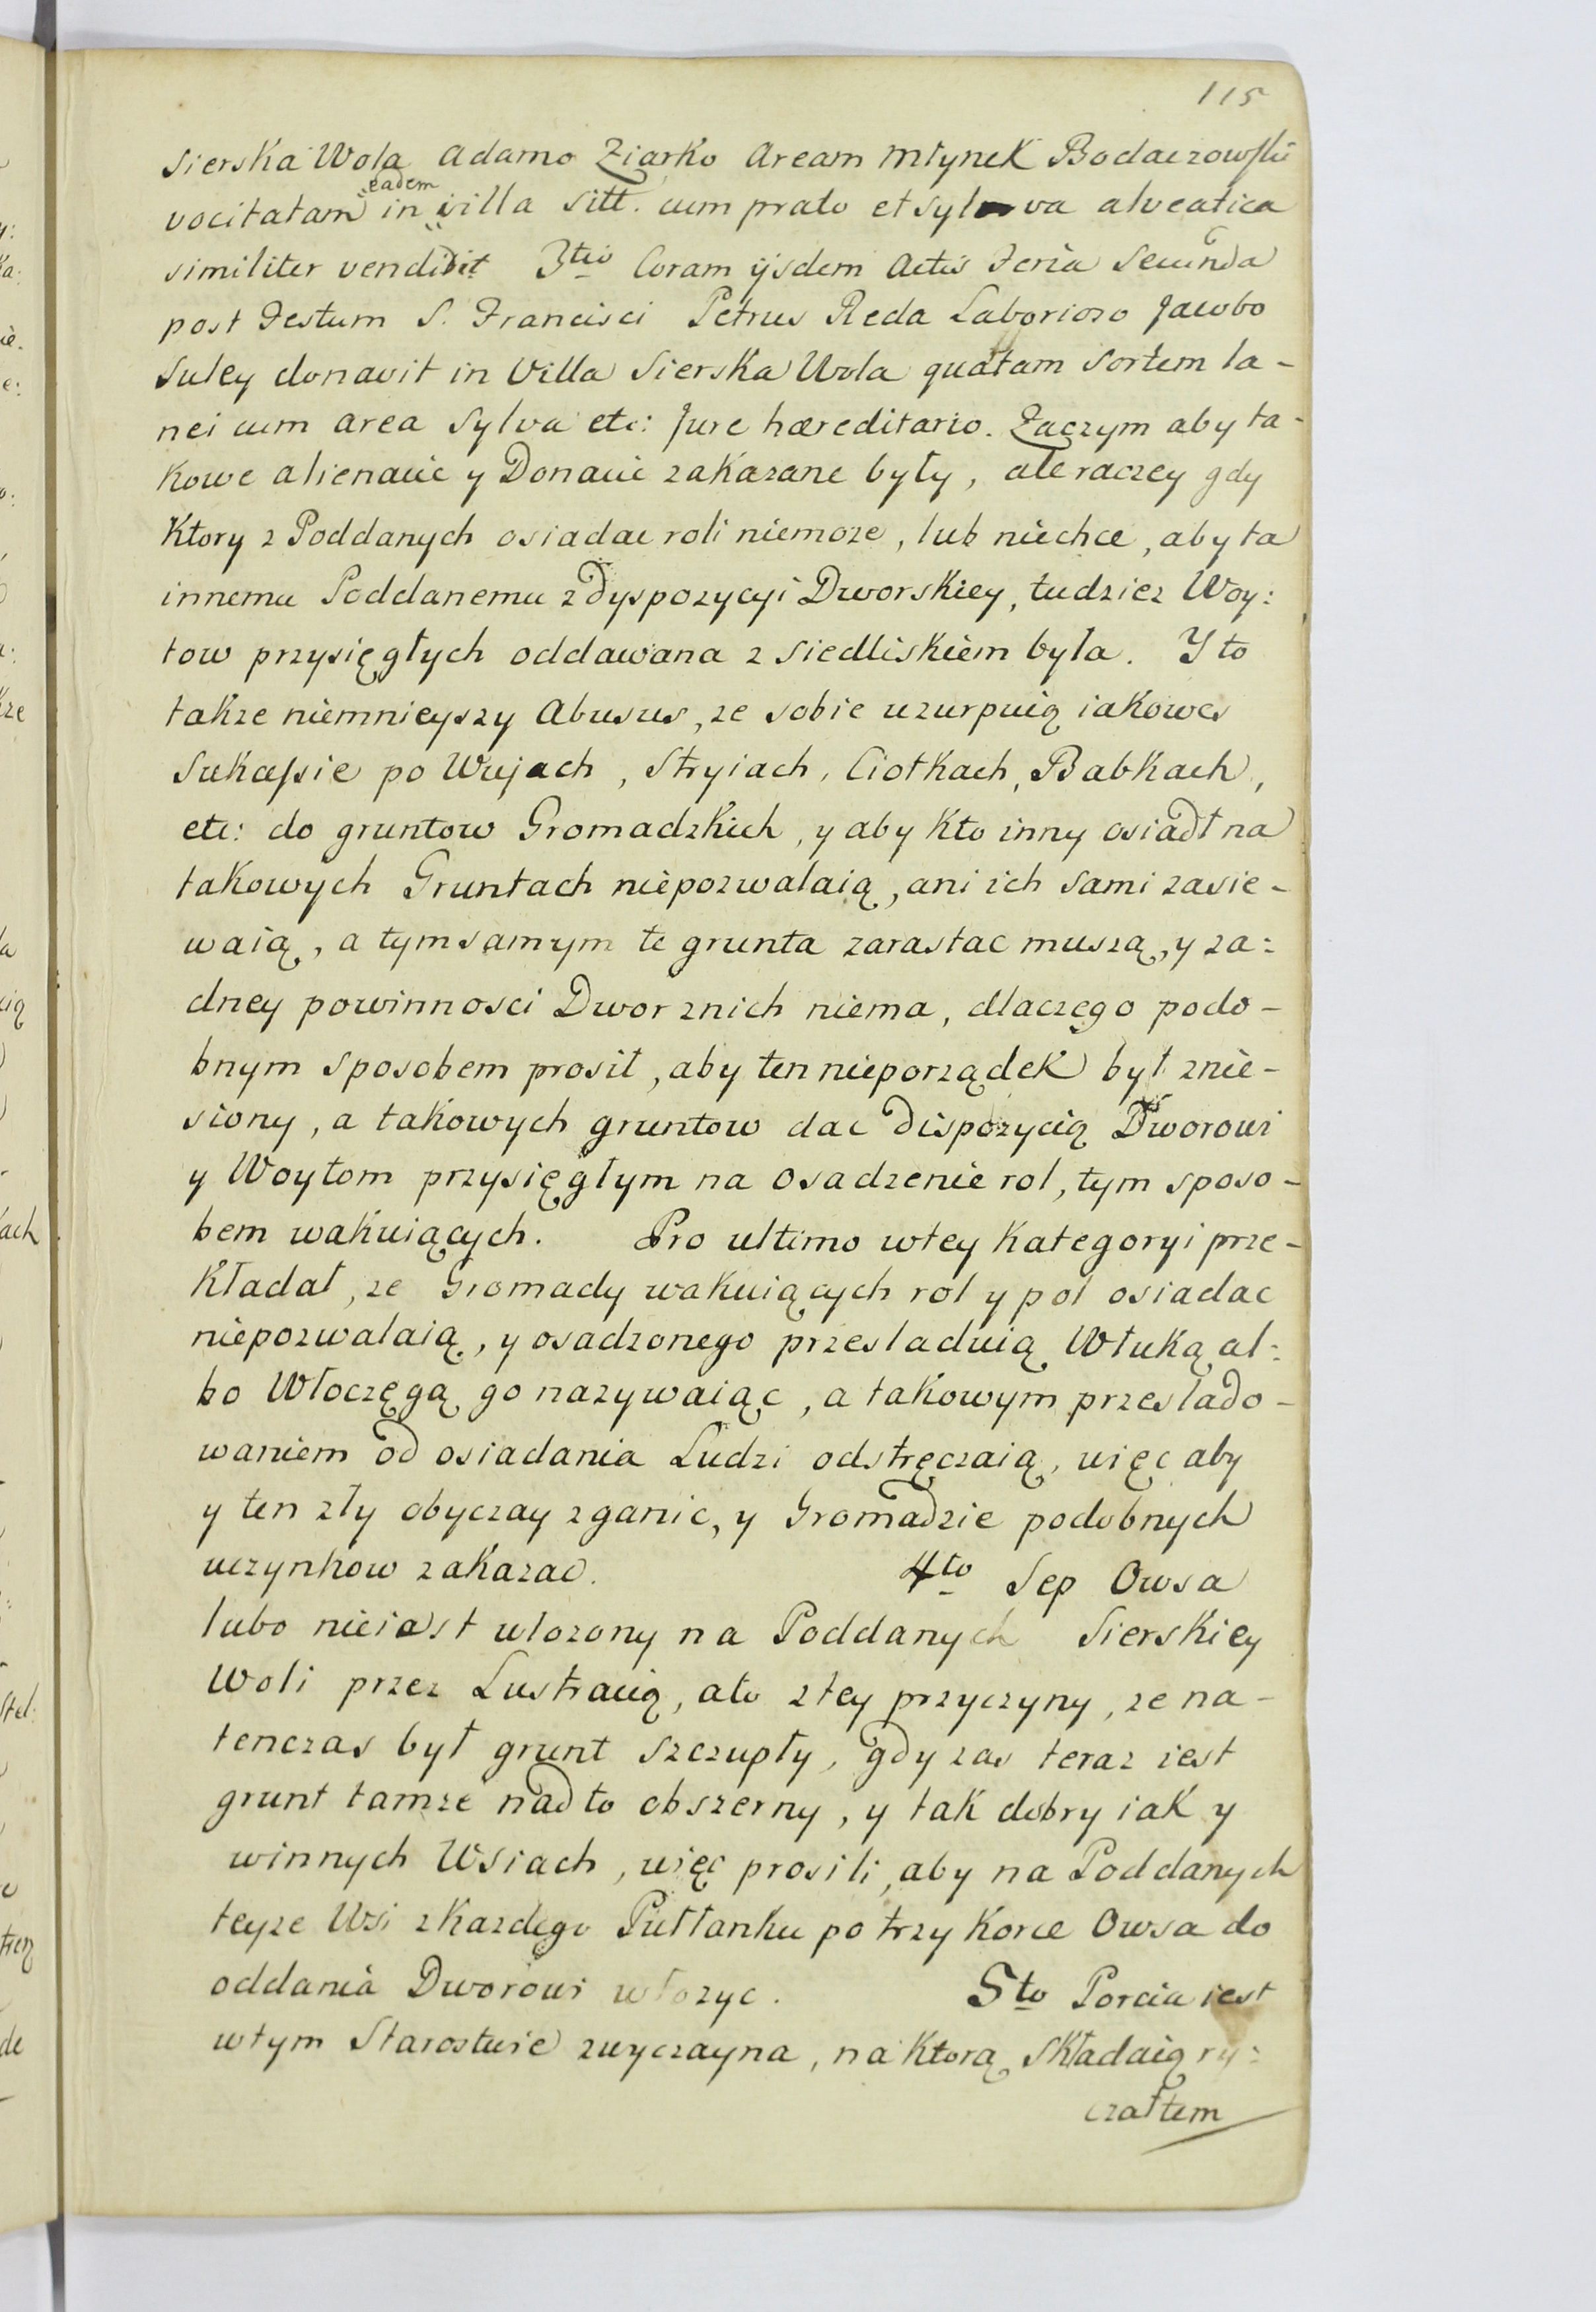 115
Sierska Wola Adamo Ziarko Aream Młynek Bodaczowski
vocitatam in eadem villa sitt. cum prato et sylva alveatica
similiter vendidit 3tio Coram ijsdem Actis Feria Secunda
post Festum S. Francisci Petrus Reda Laborioso Jacobo
Suley donavit in Villa Sierska Wola quatam Sortem la-
nei cum area Sylva etc: Jure hæreditario. Zaczym aby ta-
kowe alienacie y Donacie zakazane były, ale raczey gdy
Ktory z Poddanych osiadac roli niemoze, lub niechce, aby ta
innemu Poddanemu z dyspozycyi Dworskiey, tudziez Woy:
tow przysięgłych oddawana z siedliskiem była. Y to
takze niemnieyszy Abusus, ze sobie uzurpuią iakowes
Sukcessie po Wujach, Stryiach, Ciotkach, Babkach,
etc: do gruntow Gromadzkich, y aby Kto inny osiadł na
takowych Gruntach niepozwalaią, ani ich sami zasie-
waią, a tym samym te grunta zarastac muszą, y za:
dney powinnosci Dwor znich niema, dlaczego podo-
bnym sposobem prosił, aby ten nieporządek był znie-
siony, a takowych gruntow dac Dispozycią Dworowi
y Woytom przysięgłym na osadzenie rol, tym sposo-
bem wakuiących. Pro ultimo wtey Kategoryi prze-
kładał, ze Gromady wakuiących rol y pol osiadac
niepozwalaią, y osadzonego przesladuią Włuką al:
bo Włoczęgą go nazywaiąc, a takowym przeslado-
waniem od osiadania Ludzi odstręczaią, więc aby
y ten zły obyczay zganic, y Gromadzie podobnych
uczynkow zakazac. 4to Sep Owsa
lubo nieiest włozony na Poddanych Sierskiey
Woli przez Lustracią, ato ztey przyczyny, ze na-
tenczas był grunt szczupły, gdy zas teraz iest
grunt tamze nadto obszerny, y tak dobry iak y
winnych Wsiach, więc prosili, aby na Poddanych
teyze Wsi zkazdego Pułłanku po trzy Korce Owsa do
oddania Dworowi włozyc. 5to Porcia iest
wtym Starostwie zwyczayna, na Ktorą składaią ry:
czałtem